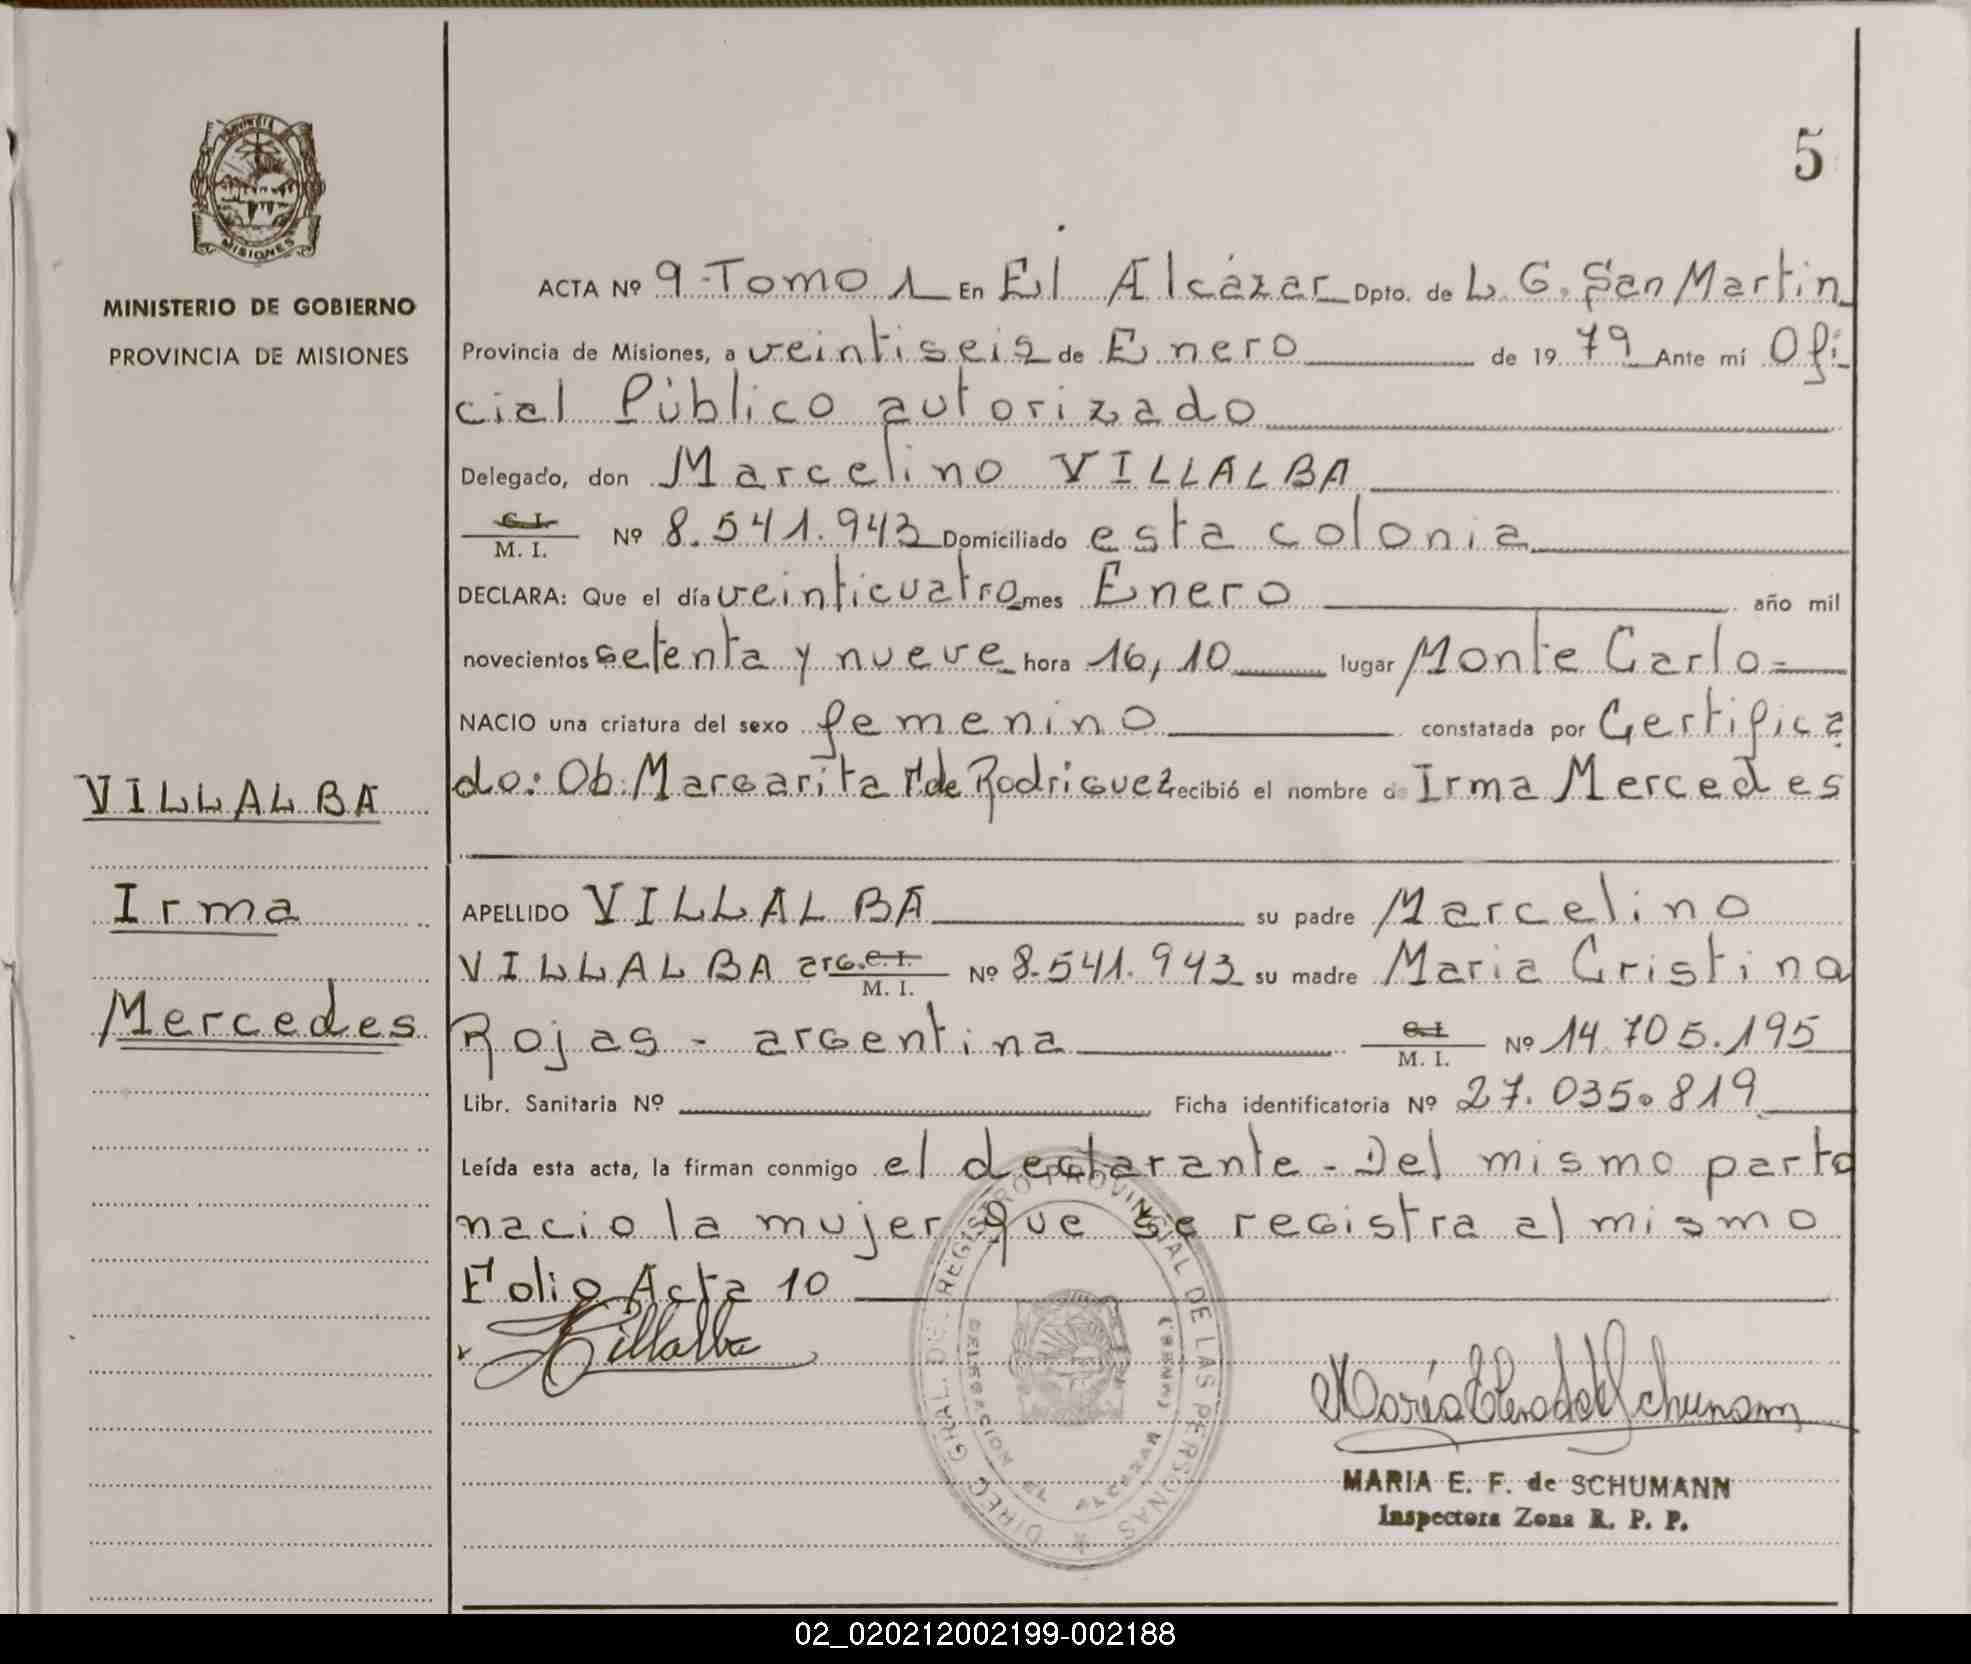 PROVINCIA
MISIONES
MINISTERIO DE GOBIERNO
PROVINCIA DE MISIONES
VILLALBA
Irma
Mercedes
5
ACTA Nº 9-Tomo 1 En El Alcázar Dpto. de L. G. San Martin
Provincia de Misiones, a veintiseis de Enero de 1979 Ante mí Ofi
cial Público autorizado
Delegado, don Marcelino VILLALBA
C. I.
M. I. Nº 8.541.943 Domiciliado esta colonia
DECLARA: Que el día veinticuatro mes Enero año mil
novecientos setenta y nueve hora 16,10 lugar Monte Carlo=
NACIO una criatura del sexo femenino constatada por Certifica
do: Ob: Margarita F. de Rodriguez recibió el nombre de Irma Mercedes
APELLIDO VILLALBA su padre Marcelino
VILLALBA arg. C. I.
M. I. Nº 8.541.943 su madre Maria Cristina
Rojas - argentina C. I.
M. I. Nº 14.705.195
Libr. Sanitaria Nº Ficha identificatoria Nº 27.035.819
Leída esta acta, la firman conmigo el declarante - Del mismo parto
nacio la mujer que se registra al mismo
Folio Acta 10
Villalba
DIREC. GRAL. DEL REGISTRO PROVINCIAL DE LAS PERSONAS
DELEGACION EL ALCAZAR
María Elena F. de Schumann
MARIA E. F. de SCHUMANN
Inspectora Zona R. P. P.
02_020212002199-002188